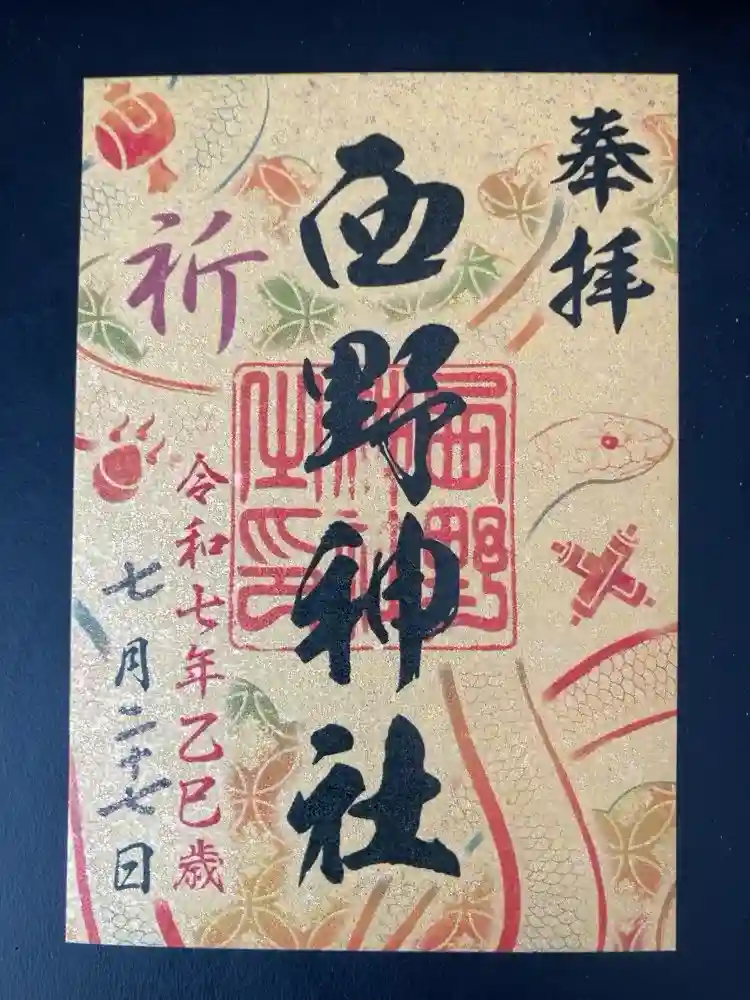 奉拝
西野神社
西野神社之印
祈
令和七年乙巳歳
七月二十七日